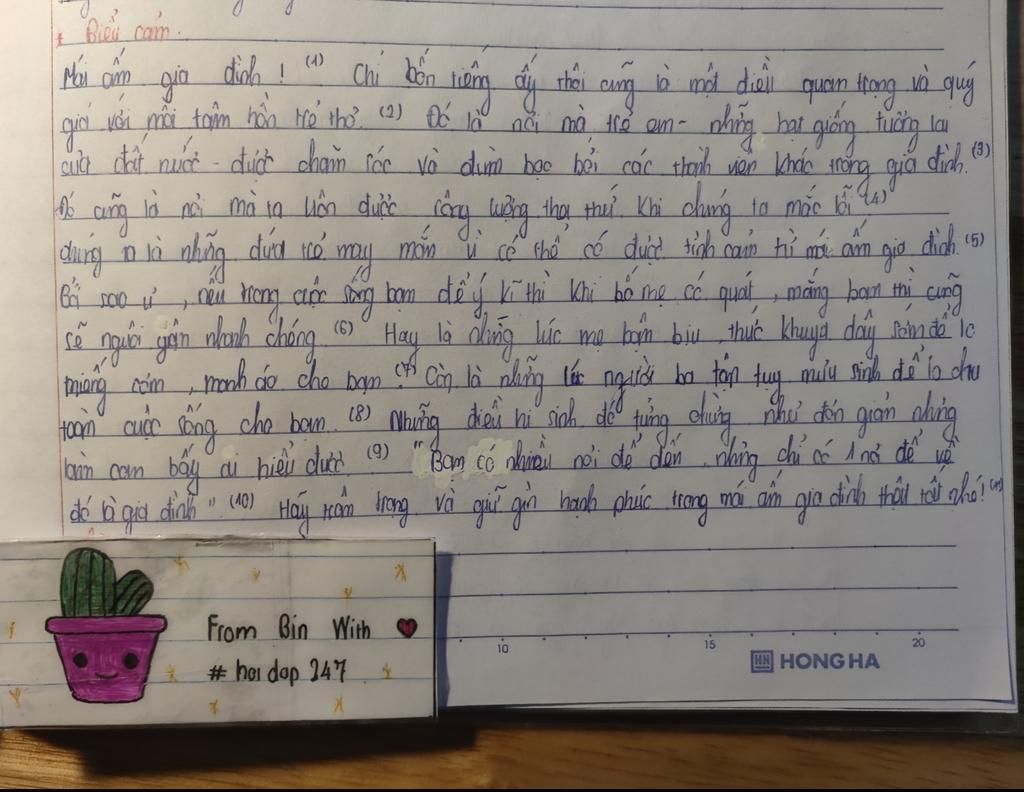 * Biểu cảm.
Mái ấm gia đình ! (1) Chỉ bốn tiếng ấy thôi cũng là một điều quan trọng và quý
giá với mỗi tâm hồn trẻ thơ. (2) Đó là nơi mà trẻ em - những hạt giống tương lai
của đất nước - được chăm sóc và đùm bọc bởi các thành viên khác trong gia đình. (3)
Đó cũng là nơi mà ta luôn được rộng lượng tha thứ khi chúng ta mắc lỗi (4)
chúng ta là những đứa trẻ may mắn vì có thể có được tình cảm từ mái ấm gia đình. (5)
Bởi sao ư , nếu trong cuộc sống bạn để ý kĩ thì khi bố mẹ có quát , mắng bạn thì cũng
sẽ nguôi giận nhanh chóng. (6) Hay là những lúc mẹ bận bịu , thức khuya dậy sớm để lo
miếng cơm , manh áo cho bạn. (7) Còn là những lúc người ba tận tụy mưu sinh để lo chu
toàn cuộc sống cho bạn. (8) Những điều hi sinh đó tưởng chừng như đơn giản nhưng
làm cam bấy ai hiểu được. (9) "Bạn có nhiều nơi để đến , nhưng chỉ có 1 nơi để về
đó là gia đình". (10) Hãy trân trọng và giữ gìn hạnh phúc trong mái ấm gia đình thật tốt nhé! (11)
From Bin With
# hoi dap 247
10 15 20
HN HONG HA